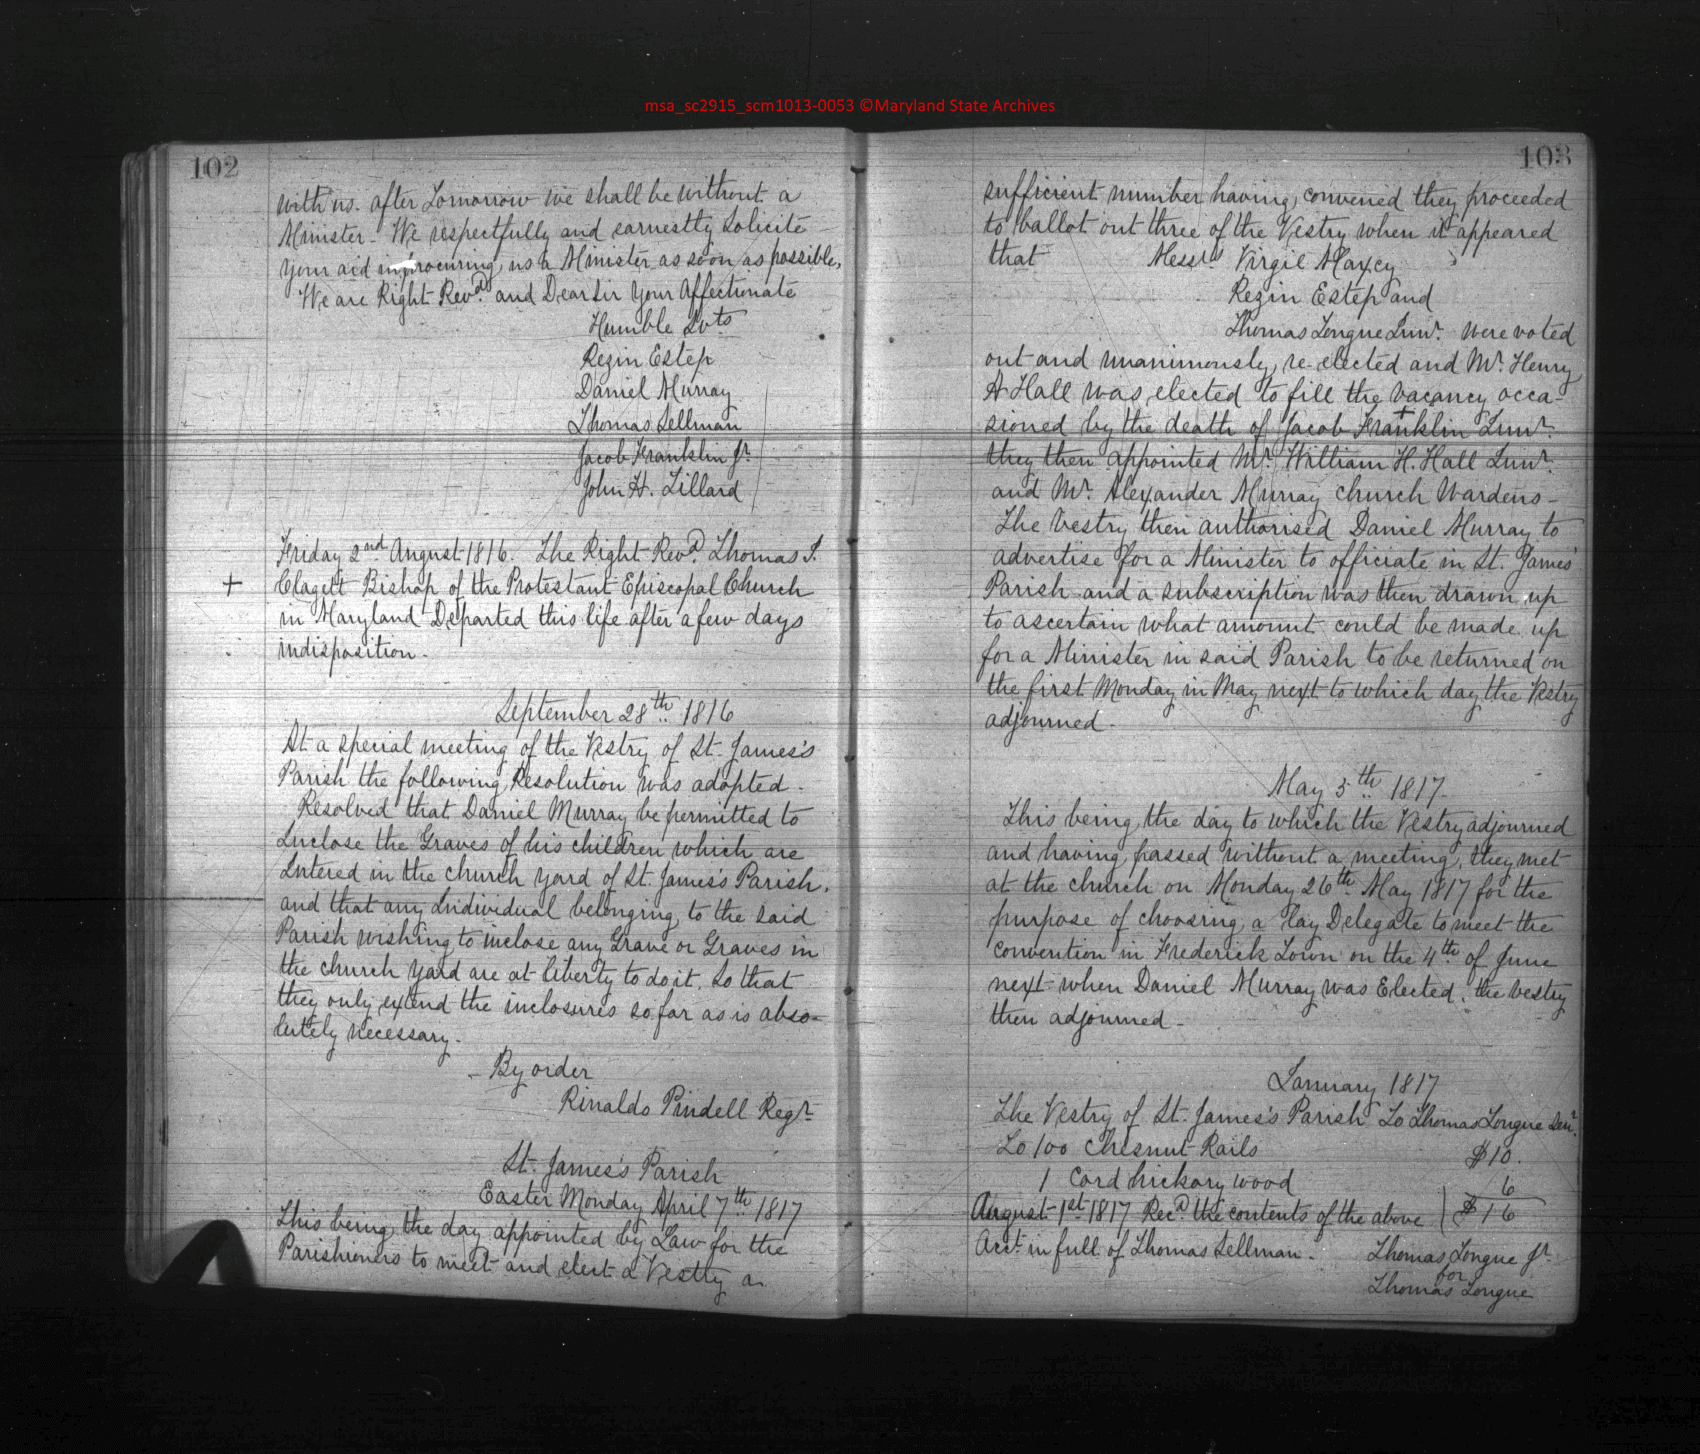 msa_sc2915_scm1013-0053 ©Maryland State Archives
102
with us. after Tomorrow we shall be without a
Minister - We respectfully and earnestly Solicite
your aid in procuring us a Minister as soon as possible,
We are Right Revd. and Dear Sir Your Affectionate
Humble Svts
Rezin Estep
Daniel Murray
Thomas Sellman
Jacob Franklin Jr.
John H. Tillard
Friday 2nd August 1816. The Right Revd. Thomas J.
+ Clagett Bishop of the Protestant Episcopal Church
in Maryland Departed this life after a few days
indisposition -
September 28th 1816
At a special meeting of the Vestry of St. James's
Parish the following Resolution was adopted -
Resolved that Daniel Murray be permitted to
Inclose the Graves of his children which are
Intered in the church yard of St. James's Parish,
and that any Individual belonging to the said
Parish wishing to inclose any Grave or Graves in
the church yard are at liberty to do it. So that
they only extend the inclosures so far as is abso-
lutely necessary -
- By order
Rinaldo Pindell Regr.
St. James's Parish
Easter Monday April 7th 1817
This being the day appointed by Law for the
Parishioners to meet and elect a Vestry a
103
sufficient number having convened they proceeded
to ballot out three of the Vestry when it appeared
that Messrs Virgil Maxcy
Rezin Estep and
Thomas Tongue Junr. were voted
out and unanimously re-elected and Mr. Henry
A Hall was elected to fill the vacancy occa-
sioned by the death of Jacob Franklin Junr.
they then appointed Mr. William H. Hall Junr.
and Mr. Alexander Murray church Wardens -
The Vestry then authorised Daniel Murray to
advertise for a Minister to officiate in St. James'
Parish and a subscription was then drawn up
to ascertain what amount could be made up
for a Minister in said Parish to be returned on
the first Monday in May next to which day the Vestry
adjourned -
May 5th 1817
This being the day to which the Vestry adjourned
and having passed without a meeting, they met
at the church on Monday 26th May 1817 for the
purpose of choosing a Lay Delegate to meet the
convention in Frederick Town on the 4th of June
next when Daniel Murray was Elected. the vestry
then adjourned -
January 1817
The Vestry of St. James's Parish To Thomas Tongue Senr.
To 100 Chesnut Rails $10.
1 Cord hickory wood 6
August 1st 1817 Recd. the contents of the above } $16
Acct. in full of Thomas Sellman - Thomas Tongue Jr.
for
Thomas Tongue